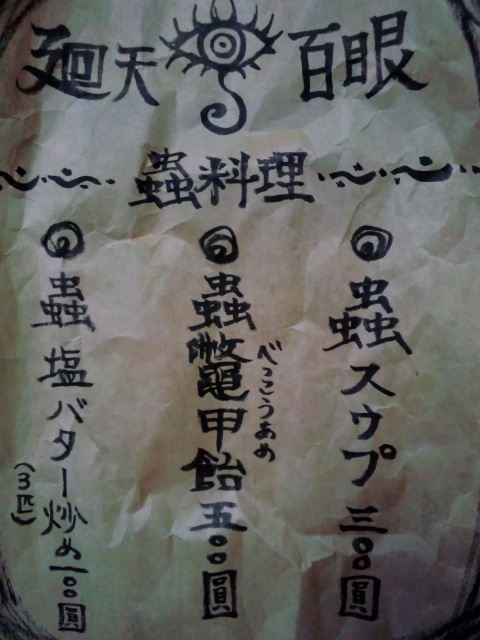 廻天
百眼
蟲料理
蟲スウプ 三〇〇圓
蟲鼈甲飴 五〇〇圓
べっこうあめ
蟲塩バター炒め 一〇〇圓
(3匹)